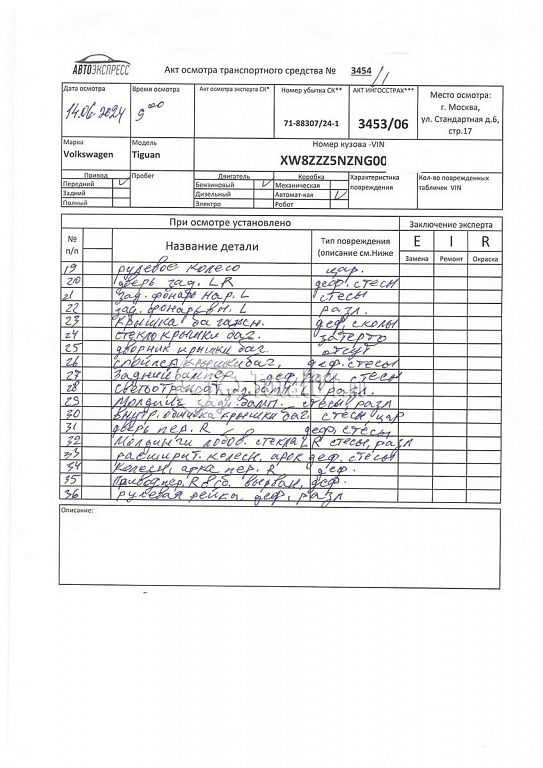 АВТОЭКСПРЕСС
Акт осмотра транспортного средства № 3454/1
Дата осмотра
14.06.2024
Время осмотра
9 00
Акт осмотра эксперта СК*
Номер убытка СК**
71-88307/24-1
АКТ ИНГОССТРАХ***
3453/06
Место осмотра:
г. Москва,
ул. Стандартная д.6,
стр.17
Марка
Volkswagen
Модель
Tiguan
Номер кузова -VIN
XW8ZZZ5NZNG00
Привод
Передний V
Задний
Полный
Пробег
Двигатель
Бензиновый V
Дизельный
Электро
Коробка
Механическая
Автомат-кая V
Робот
Характеристика
повреждения
Кол-во поврежденных
табличек VIN
При осмотре установлено
Заключение эксперта
№
п/п
Название детали
Тип повреждения
(описание см.Ниже
E I R
Замена Ремонт Окраска
19 рулевое колесо цар.
20 дверь зад. LR деф. стесы
21 зад. фонарь нар. L стесы
22 зад. фонарь вн. L разл.
23 крышка багажн. деф. сколы
24 стекло крышки баг. затерто
25 дворник крышки баг. отсут
26 спойлер крышки баг. деф. стесы
27 Задний бампер деф. разл. стесы
28 разл.
29 Молдинг задн. бамп. стесы разл
30 внутр. обшивка крышки баг стесы цар
31 дверь пер. R деф. стесы
32 Молдинги лобов. стекла LR стесы, разл
33 расширит. колесн. арок деф. стесы
34 Колесн. арка пер. R деф.
35 Привод пер. R вырван, деф.
36 рулевая рейка деф. разл
Описание: